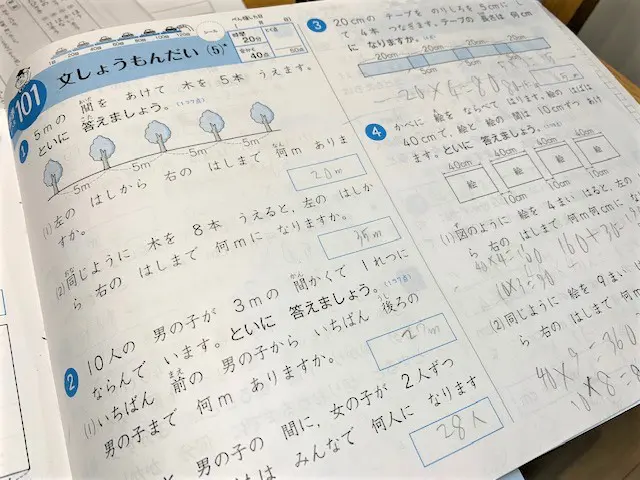 101
文しょうもんだい (5)
シール
べん強した日
時間
20分
合かく
40点
50点
1 5mの 間を あけて 木を 5本 うえます。
といに 答えましょう。
5m 5m 5m 5m
(1)左の はしから 右の はしまで 何m ありま
すか。
20m
(2)同じように 木を 8本 うえると, 左の はしか
ら右の はしまで 何mに なりますか。
35m
2 10人の 男の子が 3mの 間かくで 1れつに
ならんで います。といに 答えましょう。
(1)いちばん 前の 男の子から いちばん 後ろの
男の子まで 何m ありますか。
27m
男の子の 間に, 女の子が 2人ずつ
みんなで 何人に なります
28人
3 20cmの テープを のりしろを 5cmに
て 4本 つなぎます。テープの 長さは 何cm
に なりますか。
20cm 20cm
5cm 5cm
4 かべに 絵を ならべて はります。絵の はばは
40cmで, 絵と 絵の 間は 10cmずつ あけ
ます。といに 答えましょう。
40cm 40cm 40cm 40cm
絵 絵 絵 絵
10cm 10cm 10cm
(1)図のように 絵を 4まい はると, 左の
ら 右の はしまで 何m何cmに な
40×4=160 160+30
(2)同じように 絵を 9まい
ら 右の はしまで 何m
40×9=360
10×8=8